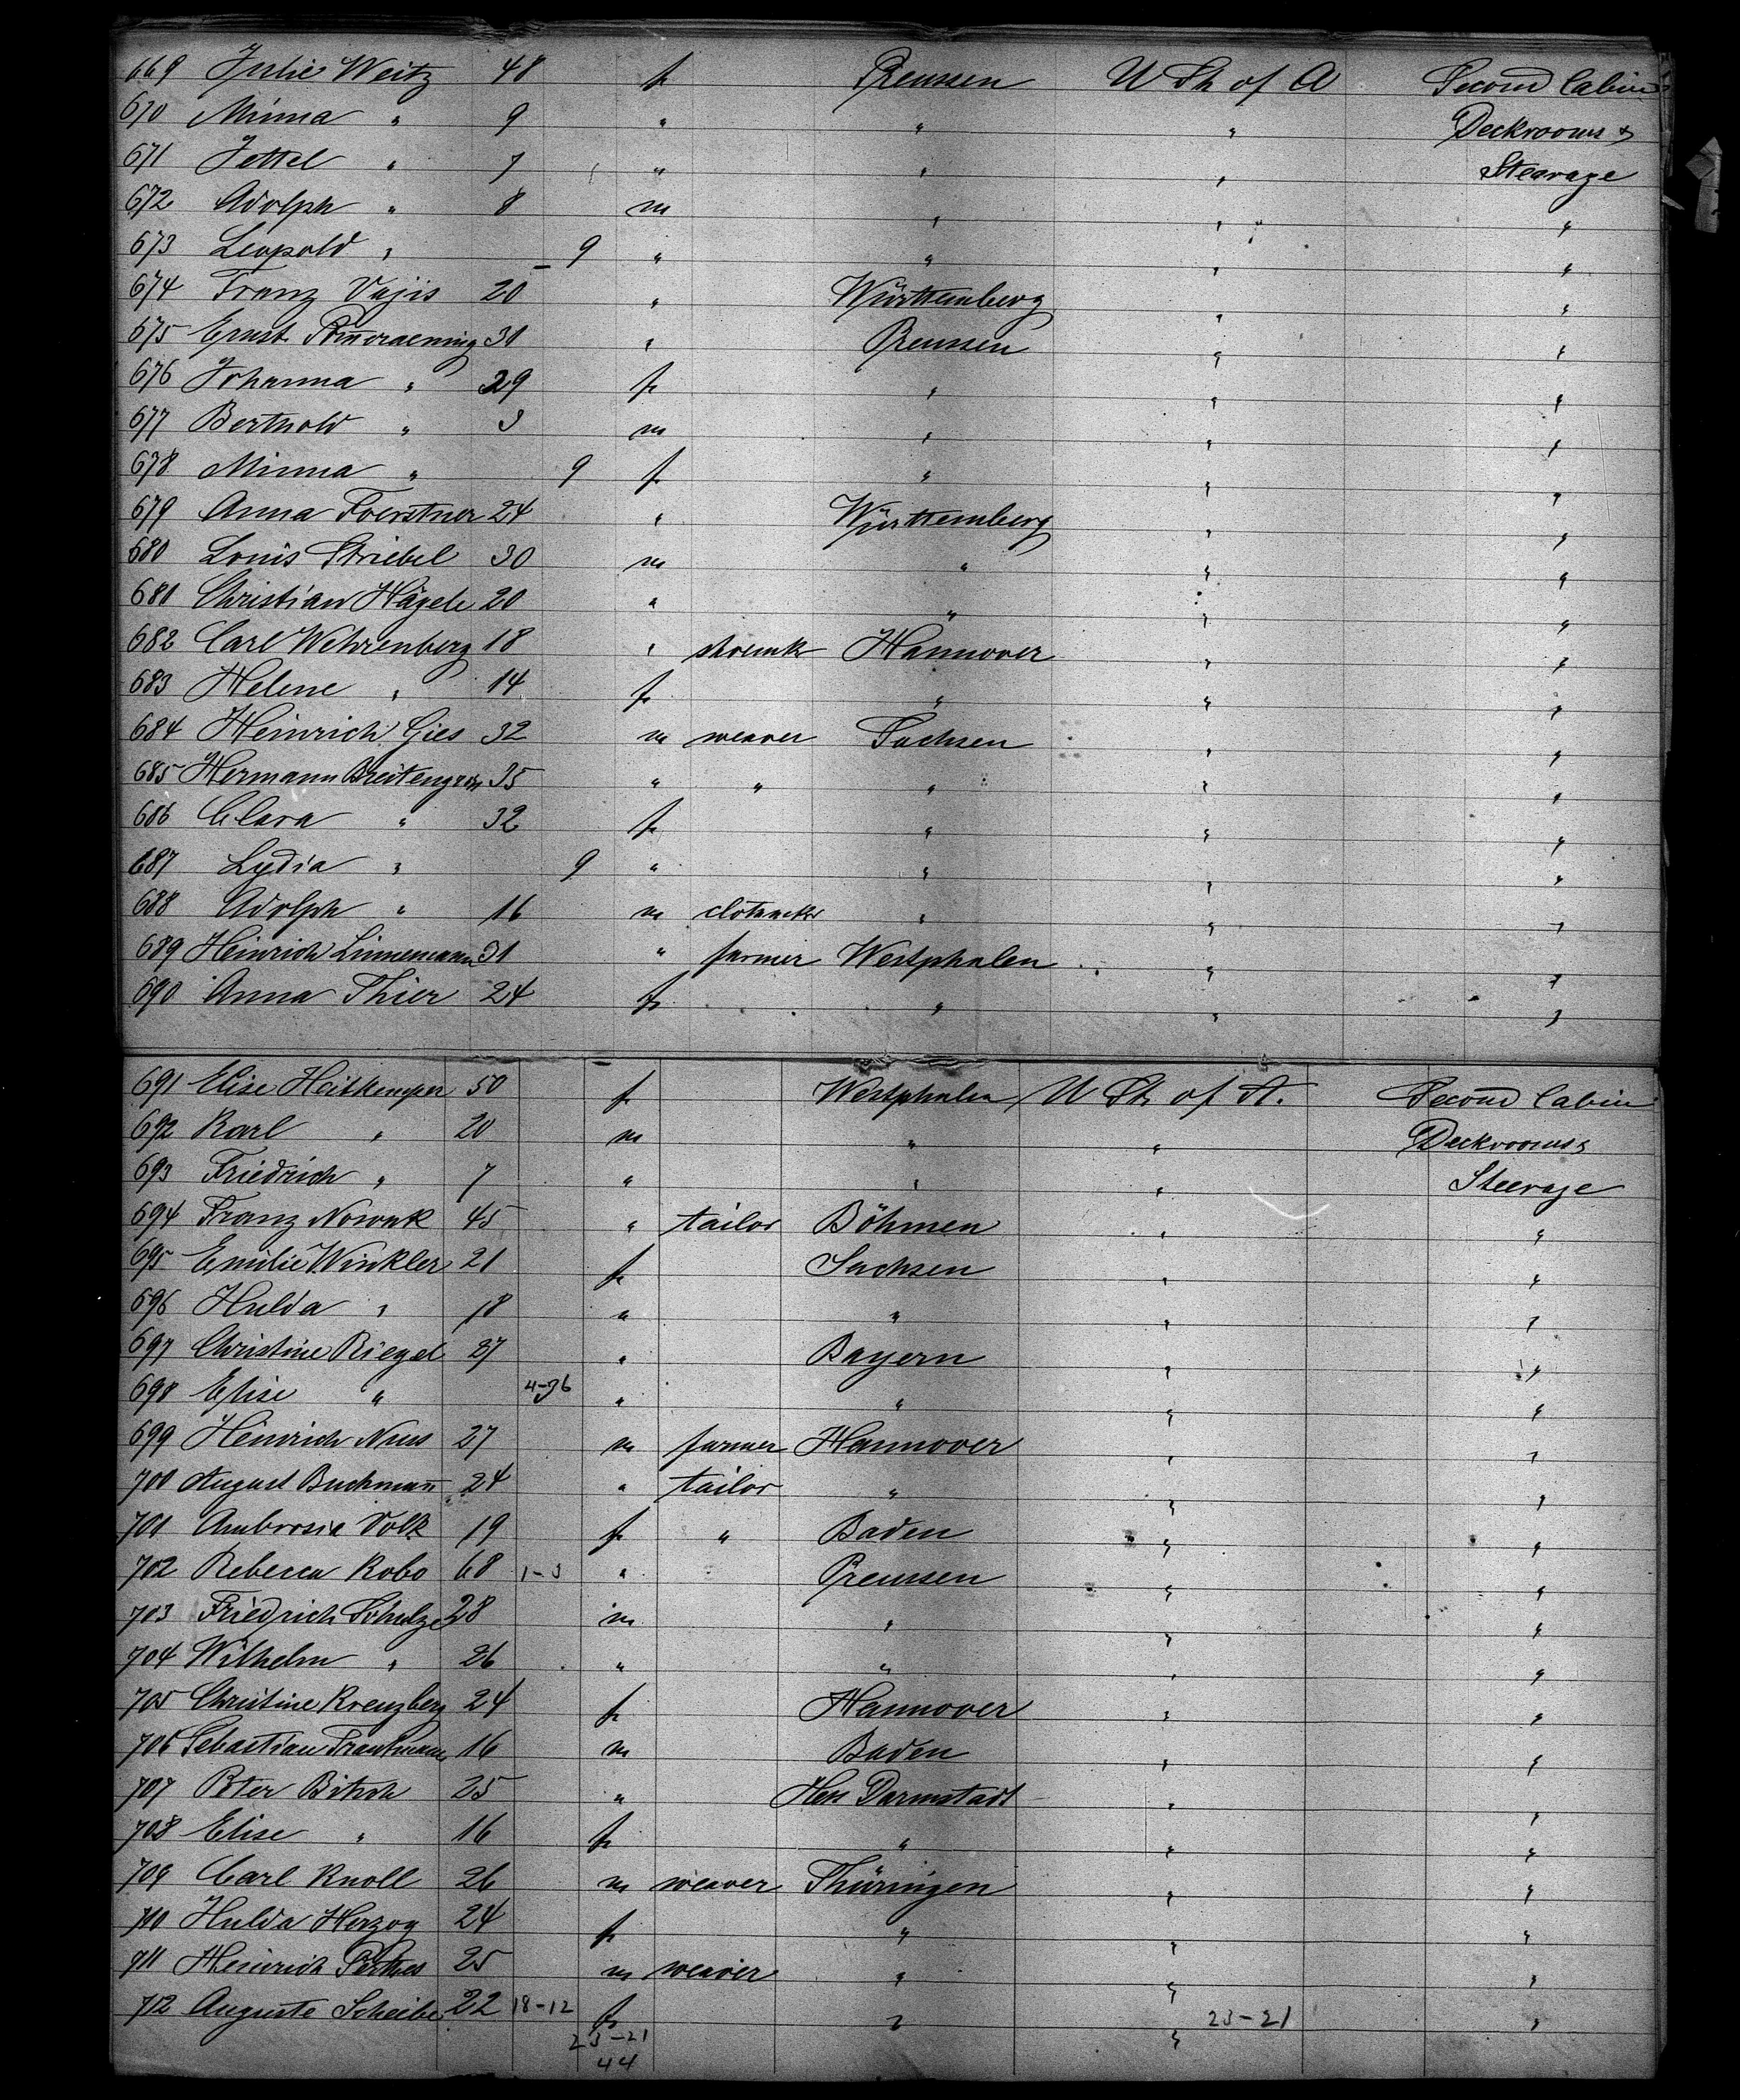 669 Julie Weitz 48 f Preussen U St of A Second Cabin
670 Minna " 9 " " " Deckrooms &
671 Jettel " 7 " " " Steerage
672 Adolph " 8 m " " "
673 Leopold " 9 " " " "
674 Franz Vajis 20 " Württemberg " "
675 Ernst 31 " Preussen " "
676 Johanna " 29 f " " "
677 Berthold " 3 m " " "
678 Minna " 9 f " " "
679 Anna Foerstner 24 " Württemberg " "
680 Louis Striebel 30 m " " "
681 Christian Hägele 20 " " " "
682 Carl Wehrenberg 18 " Hannover " "
683 Helene " 14 f " " "
684 Heinrich Gies 32 m weaver Sachsen " "
685 Hermann 35 " " " " "
686 Clara " 32 f " " "
687 Lydia " 9 " " " "
688 Adolph " 16 m " " "
689 Heinrich Linnemann 31 " farmer Westphalen " "
690 Anna Thier 24 f " " "
691 Elise Heitkemper 50 f Westphalen U St of A. Second Cabin
692 Karl " 20 m " " Deckrooms &
693 Friedrich " 7 " " " Steerage
694 Franz Nowak 45 " tailor Böhmen " "
695 Emilie Winkler 21 f Sachsen " "
696 Hulda " 18 " " " "
697 Christine Riegel 27 " Bayern " "
698 Elise " 4-36 " " " "
699 Heinrich 27 m farmer Hannover " "
700 August Buchmann 24 " tailor " " "
701 Ambrosia Volk 19 f " Baden " "
702 Rebecca Kobo 68 1-3 " Preussen " "
703 Friedrich Schulze 28 m " " "
704 Wilhelm " 26 " " " "
705 Christine Kreuzberg 24 f Hannover " "
706 Sebastian Trautmann 16 m Baden " "
707 Peter Bitsch 25 " Hess Darmstadt " "
708 Elise " 16 f " " "
709 Carl Knoll 26 m weaver Thüringen " "
710 Hulda Herzog 24 f " " "
711 Heinrich Perthes 25 m weaver " " "
712 Auguste Scheibe 22 18-12 f " " 23-21 "
23-21
44